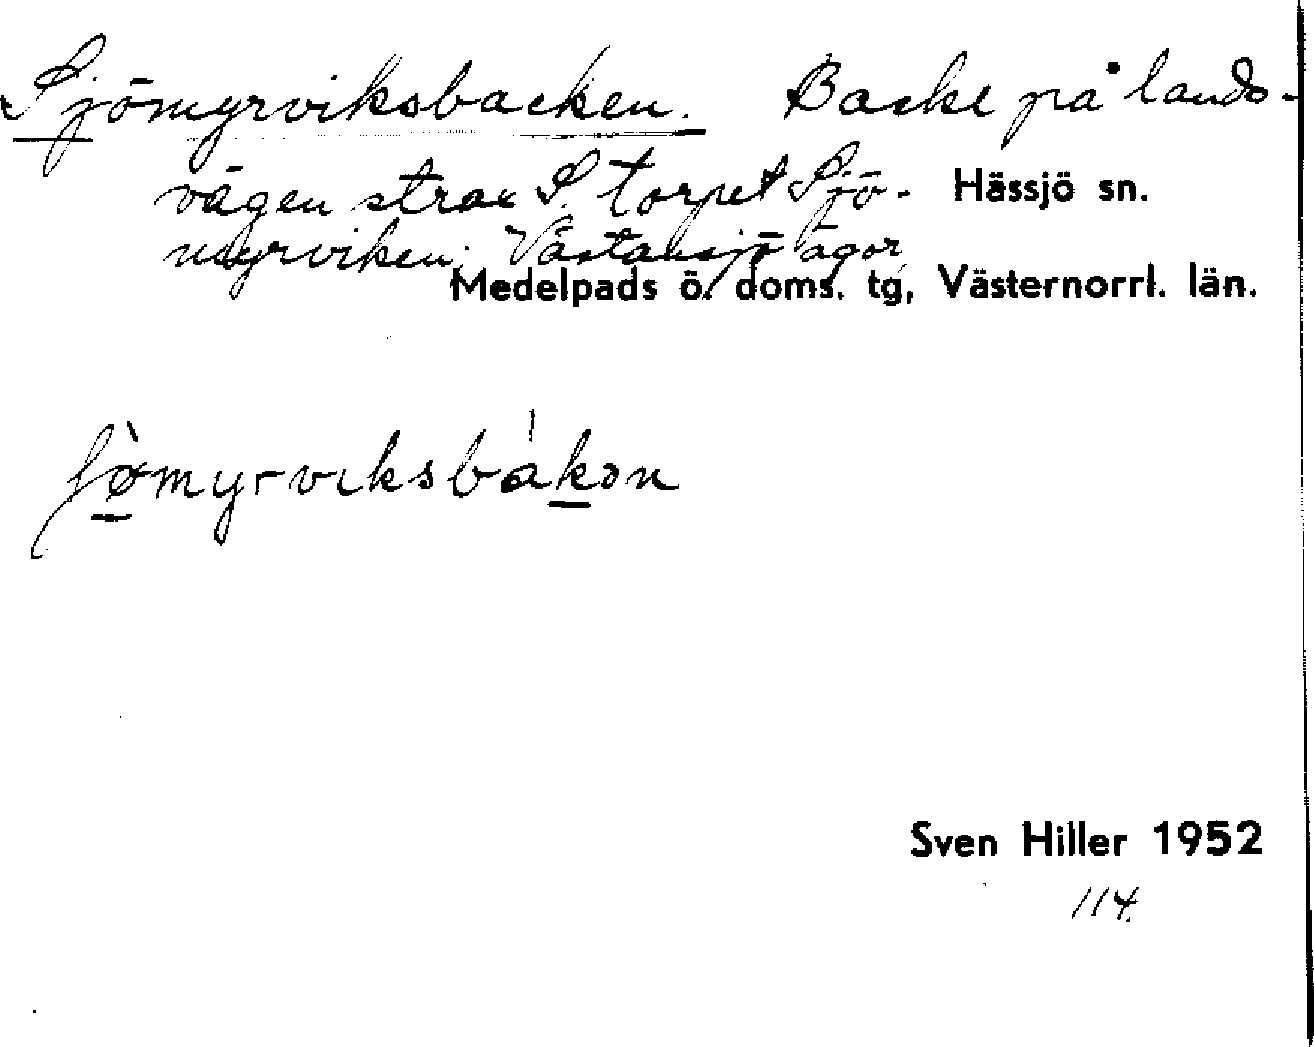 Sjömyrviksbacken. Backe på lands-
vägen strax S. torpet Sjö- Hässjö sn.
myrviken; Västansjö ägor
Medelpads ö. doms. tg, Västernorrl. län.
ʃø̀myrviksbákən
Sven Hiller 1952
114.